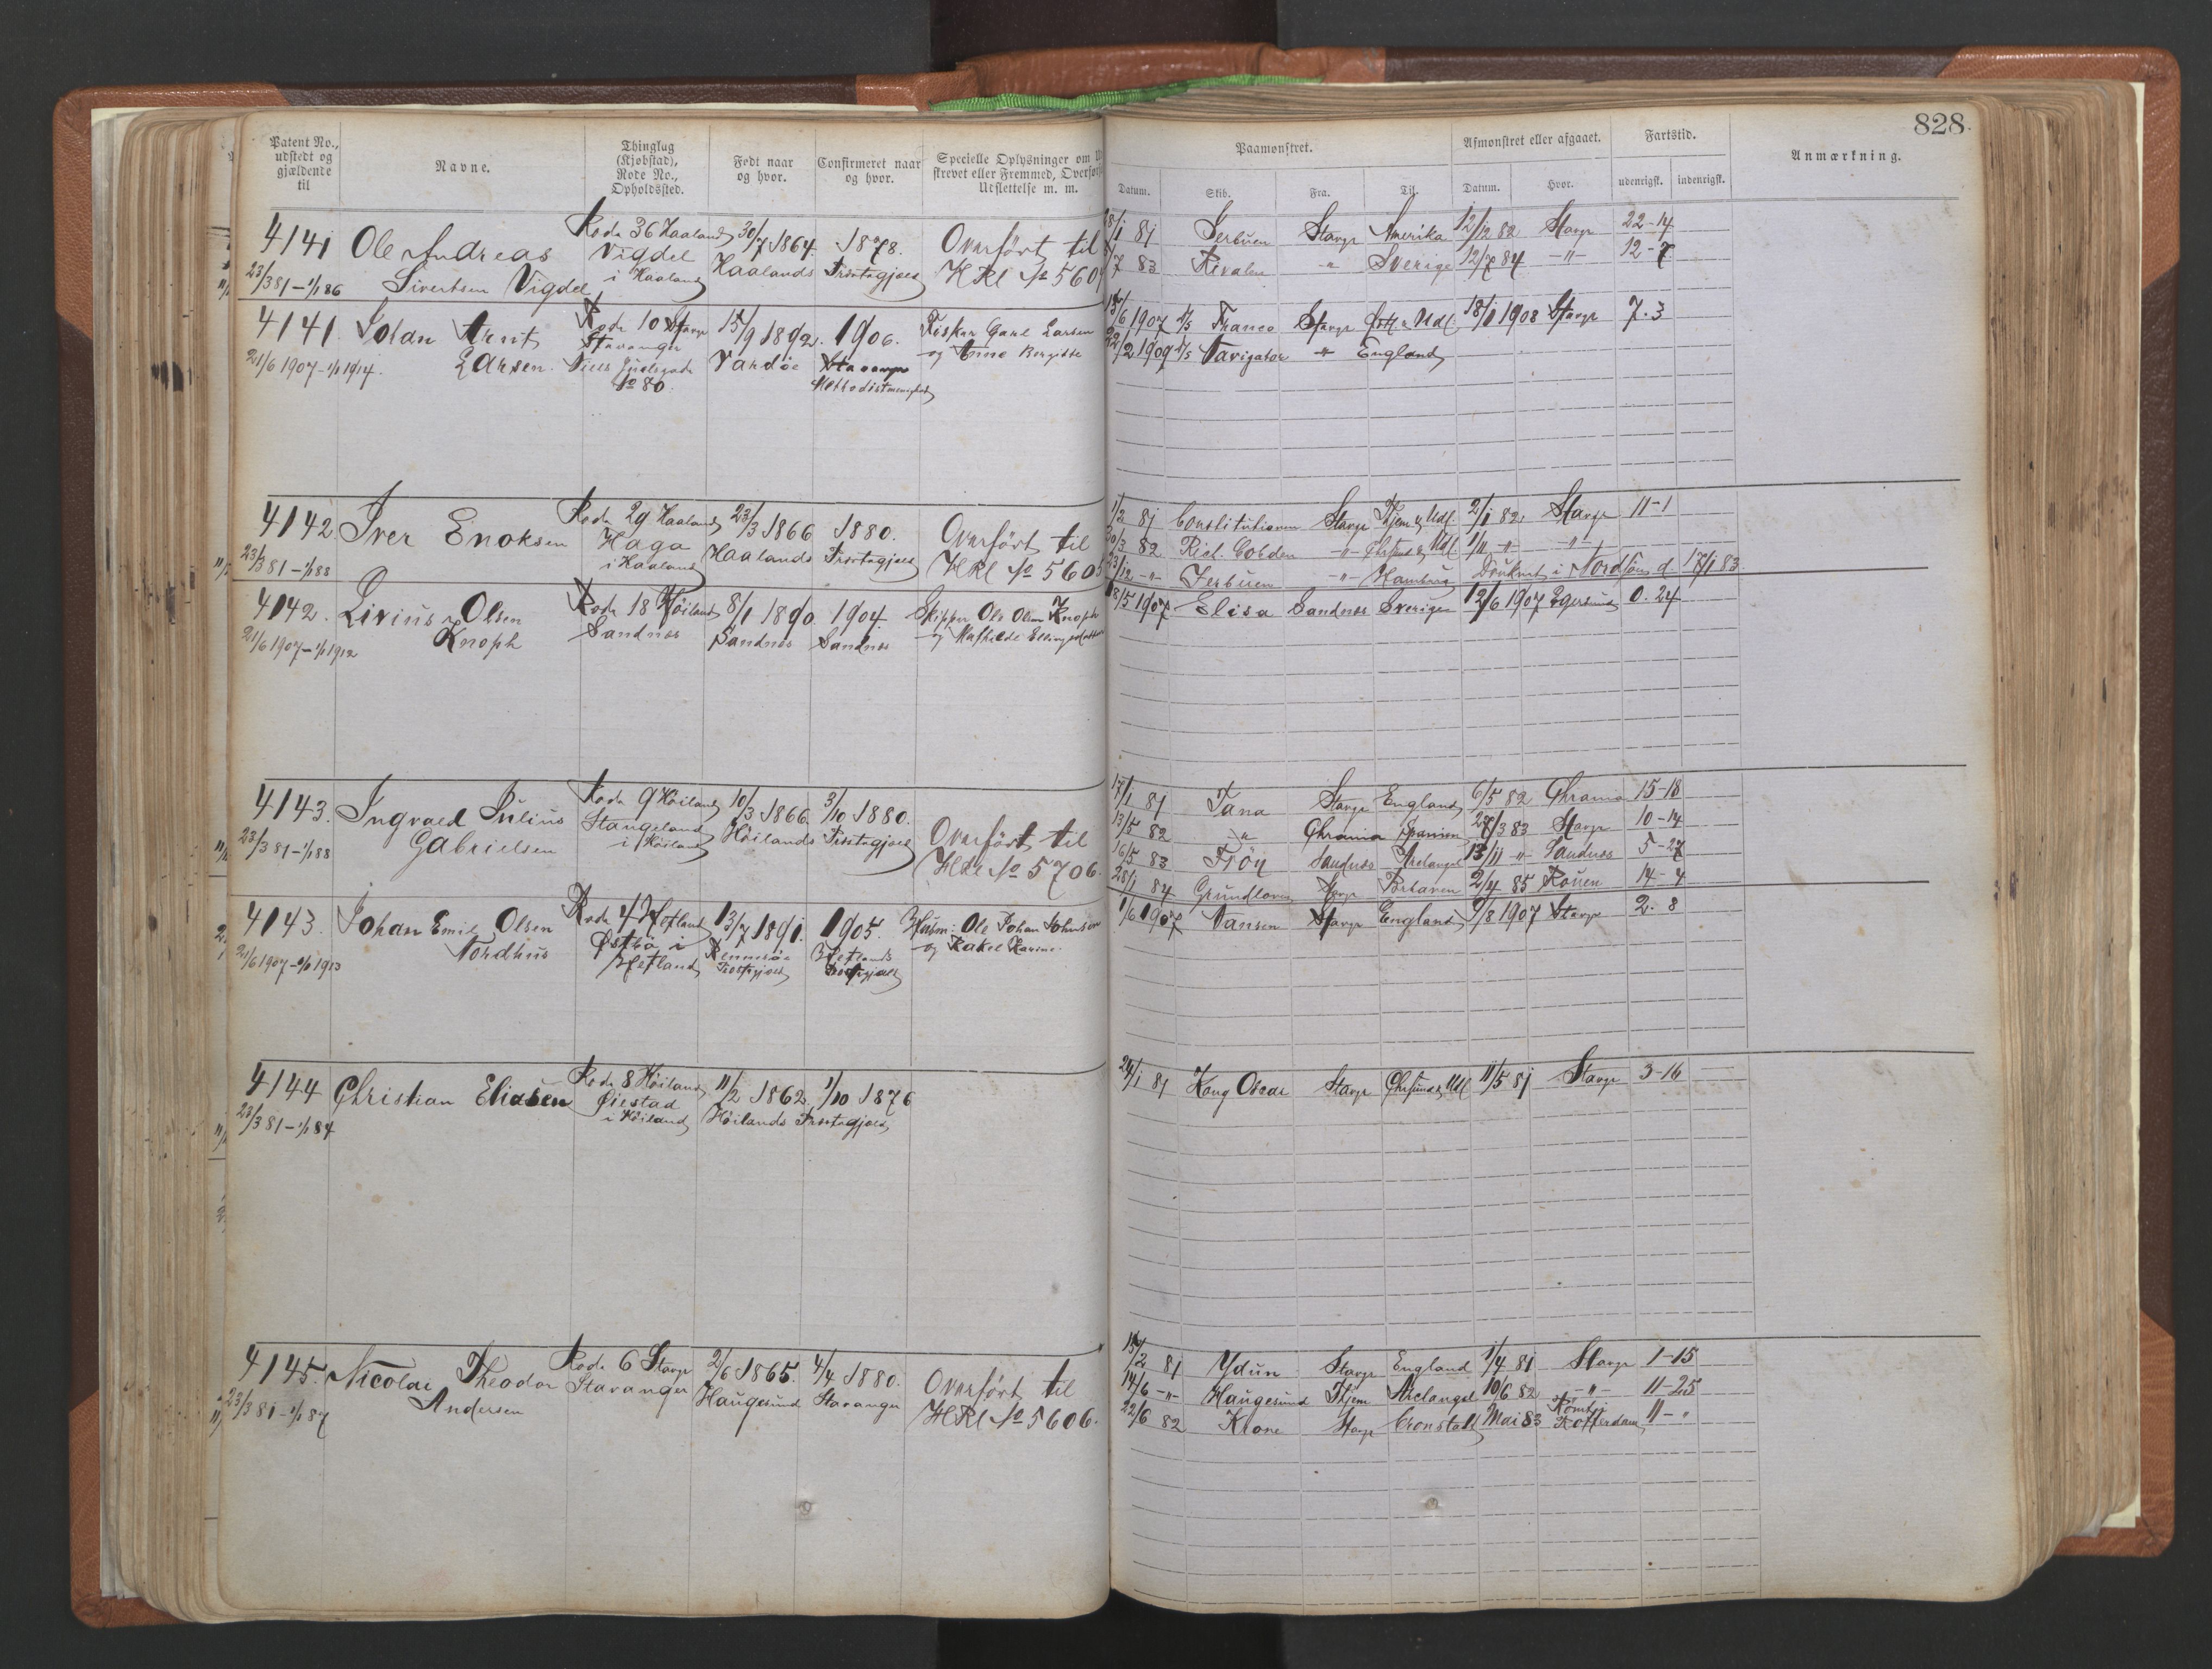 828.
Patent No., udstedt og gjældende til
Navne.
Thinglag (Kjøbstad), Rode No., Opholdssted.
Født naar og hvor.
Confirmeret naar og hvor.
Specielle Oplysninger om
skrevet eller Fremmed, Overført
Udslettelse m. m.
Paamønstret.
Afmønstret eller afgaaet.
Fartstid.
Anmærkning.
Datum. Skib. Fra. Til. Datum. Hvor. udenrigsk. indenrigsk.
4141 Ole Andreas Rode 36 Haaland 30/7 1864. 1878. Overført til
23/3 81 – 1/1 86 Sivertsen Vigdel Vigdel i Haaland Haalands Præstegjæld HRl No 560
81 Jerbuen Stavgr Amerika 12/12 82 Stavgr 22-14
7 83 Rivalen -"- Sverige 12/7 84 -"- 12-7
4141. Johan Arnt Rode 10 Stavgr 15/9 1892. 1906. Fisker Carl Larsen
21/6 1907 – 1/1 1914. Larsen. Stavanger Vardøe Stavanger og Anne Bergitte
Niels Juelsgade No 80. Methodistmenighed
15/6 1907 D/S Franco Stavgr Udl 18/1 1908 Stavgr 7.3
22/2 1909 D/S Navigator -"- England
4142 Iver Enoksen Rode 29 Haaland 23/3 1866 1880. Overført til
23/3 81 – 1/1 88 Haga i Haaland Haalands Præstegjæld HRl No 5605
1/2 81 Constitutionen Stavgr Hjem & Udl. 2/1 82 Stavgr 11-1
30/3 82 Rich. Cobden -"- Chrsund & Udl 1/11 -"- -"-
23/12 -"- Jerbuen -"- Hamburg Druknet i Nordsjøen d. 17/1 83.
4142. Livius Olsen Rode 18 Høiland 8/1 1890. 1904. Skipper Ole Olsen Knoph
21/6 1907 – 1/1 1912 Knoph Sandnes Sandnes Sandnes og Mathilde
18/5 1907 Elisa Sandnes Sverige 12/6 1907 Egersund 0.24
4143. Ingvald Julius Rode 9 Høiland 10/3 1866. 3/10 1880. Overført til
23/3 81 – 1/1 88 Gabrielsen Stangeland i Høiland Høilands Præstegjæld HRl No 5706.
17/1 81 Tana Stavgr England 6/5 82 Chrania 15-18
13/5 82 " Chrania Spanien 27/3 83 Stavgr 10-14
16/5 83 Frøy Sandnæs Archangel 13/11 -"- Sandnæs 5-27
28/1 84 Grundloven Stavgr 2/4 85 Rouen 14-4
4143. Johan Emil Olsen Rode 4 Hetland 13/7 1891. 1905. Husm: Ole Johan Johnsen
21/6 1907 – 1/1 1913 Nordhus Østbø i Hetland Rennesøe Præstegjæld Hetlands Præstegjæld og Rakel Karine.
1/6 1907 Nansen Stavgr England 9/8 1907 Stavgr 2.8
4144 Christian Eliasen Rode 8 Høiland 11/2 1862. 1/10 1876
23/3 81 – 1/1 84 Øiestad i Høiland Høilands Præstegjæld
24/1 81 Kong Oscar Stavgr Chrsund & Udl 11/5 81 Stavgr 3-16
4145. Nicolai Theodor Rode 6 Stavgr 2/6 1865. 4/4 1880. Overført til
23/3 81 – 1/1 87 Andersen Stavanger Haugesund Stavanger HRl No 5606.
15/2 81 Ydun Stavgr England 1/4 81 Stavgr 1-15
14/6 -"- Haugesund Hjem Archangel 10/6 82 -"- 11-25
22/6 82 Krone Stavgr Cronstadt Mai 83 Rømt i Rotterdam 11-"